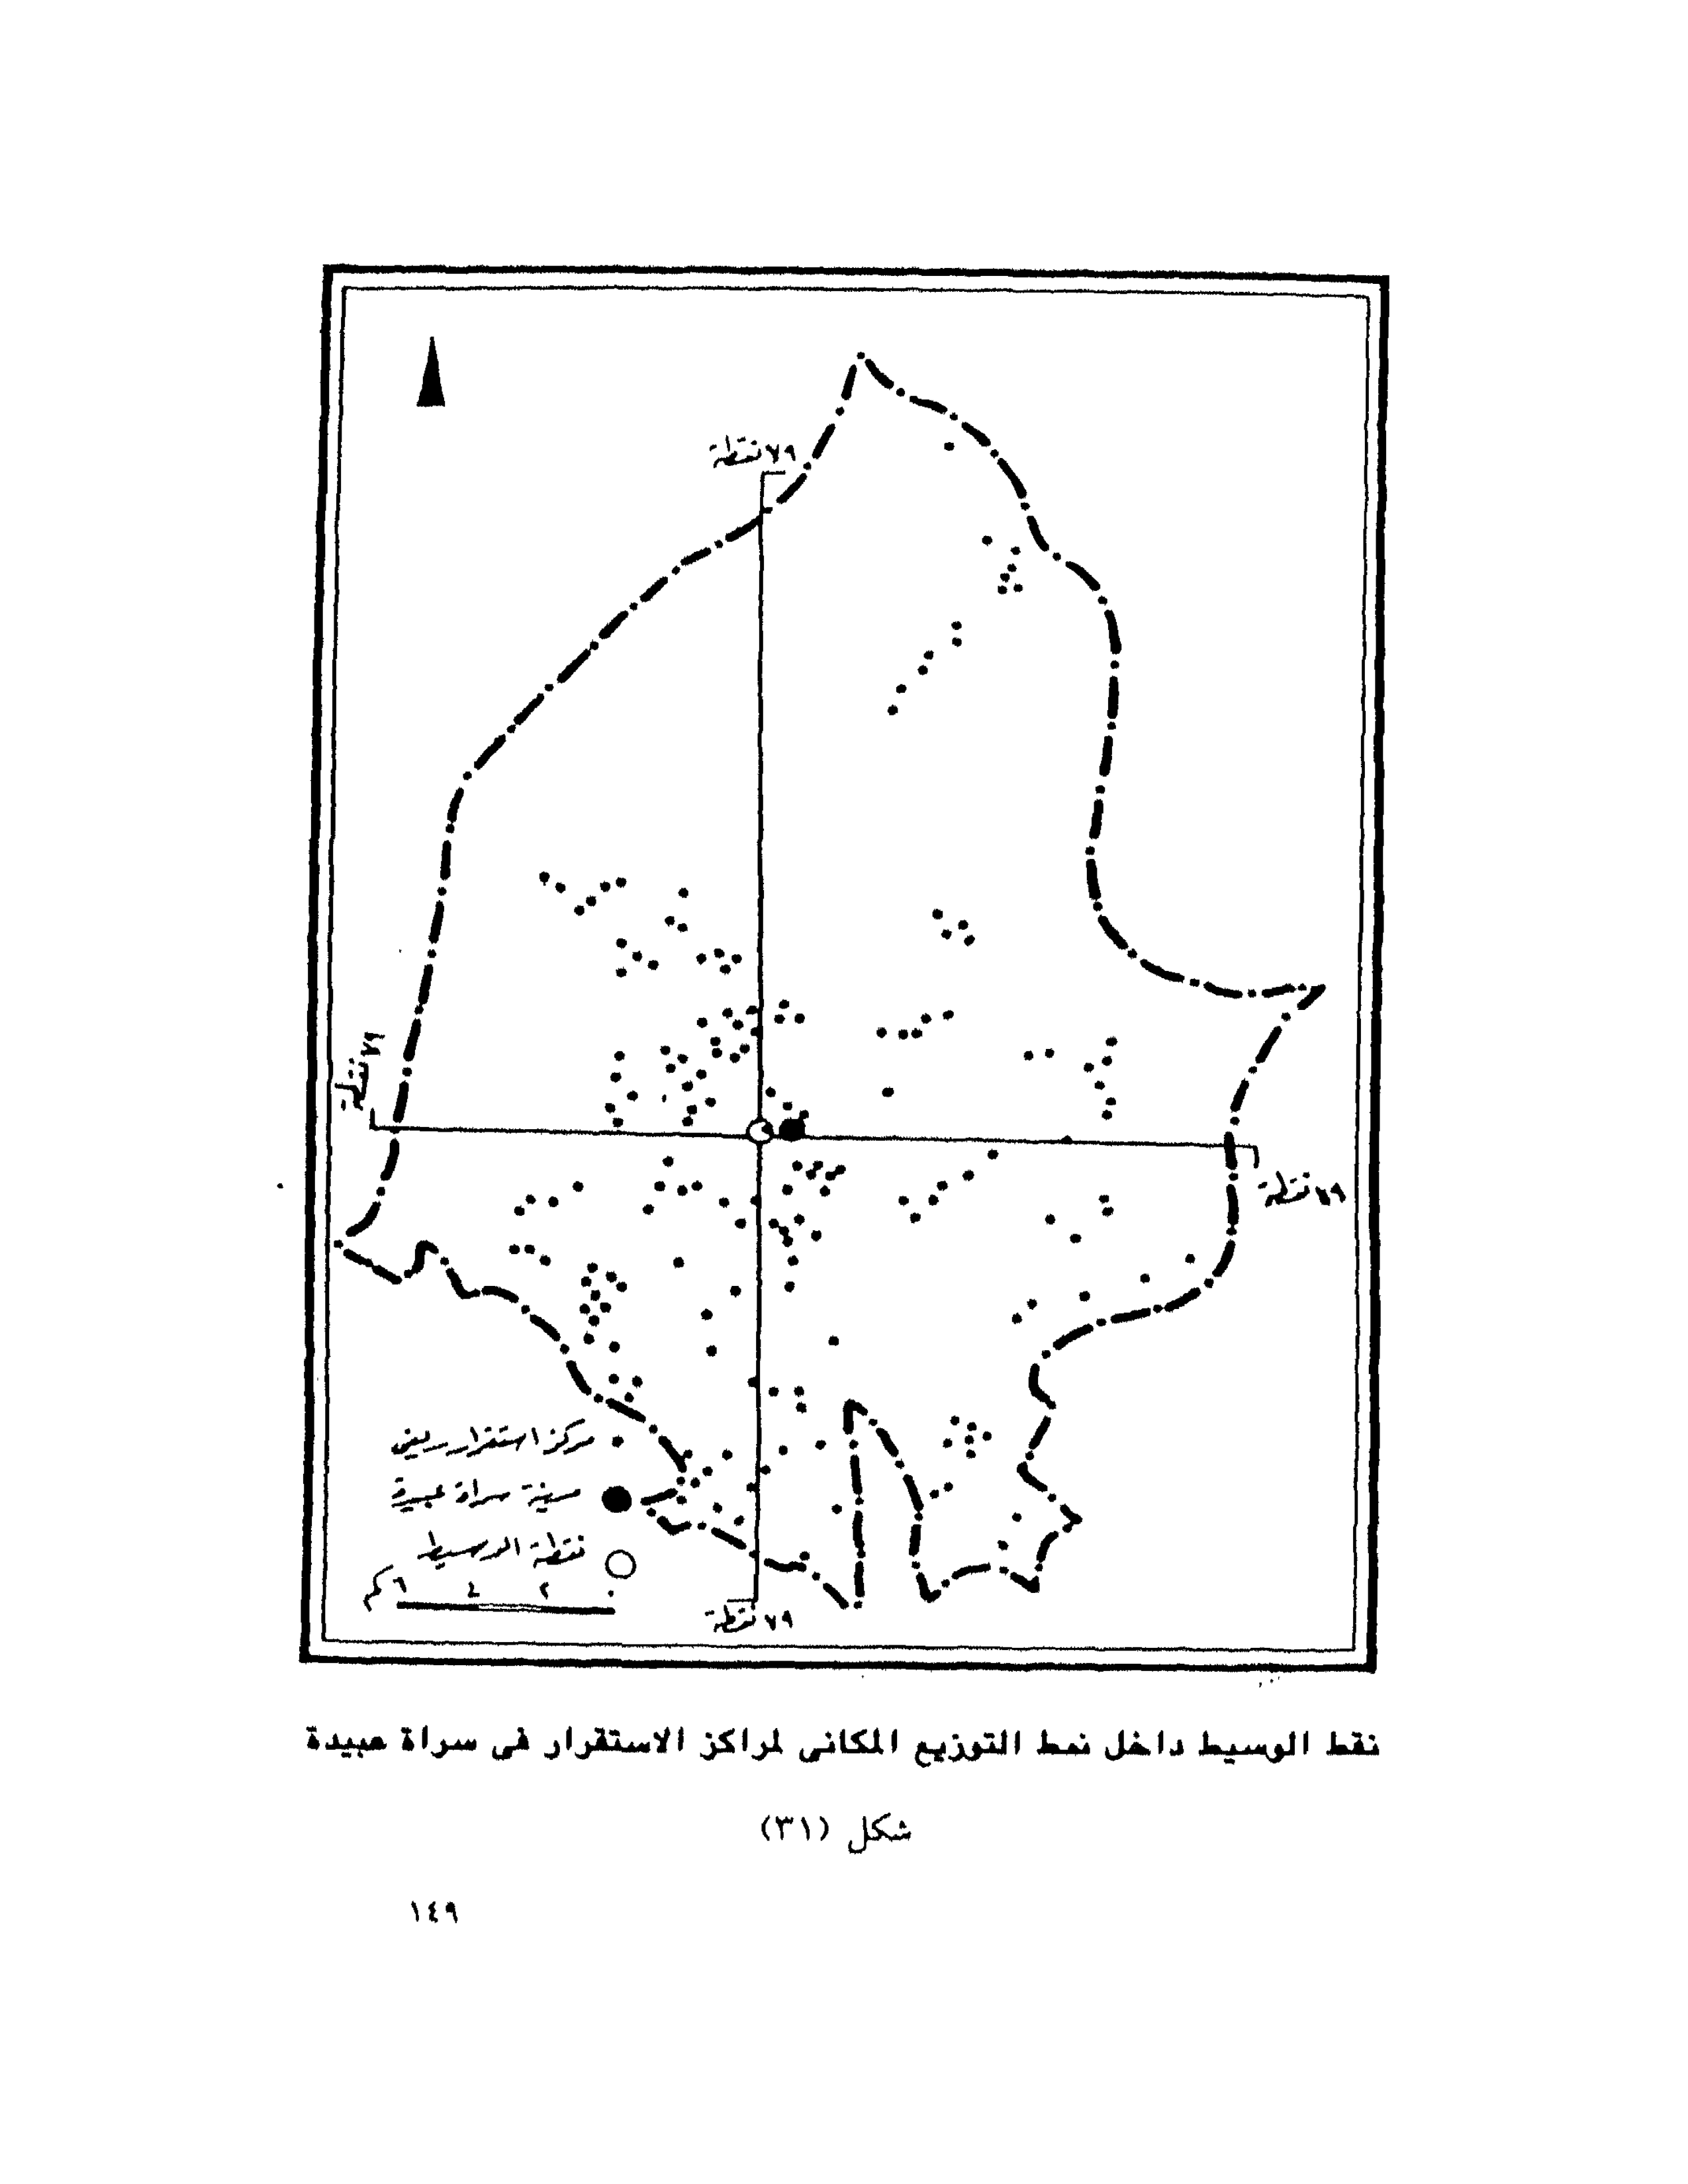 ٧٩ نقطة
٧٩ نقطة
٧٩ نقطة
مركز استقرار ريفى
مدينة سراة عبيدة
نقطة الوسيط
٠ ٢ ٤ ٦ كم
٧٩ نقطة
نقط الوسيط داخل نمط التوزيع المكانى لمراكز الاستقرار فى سراة عبيدة
شكل (٣١)
١٤٩